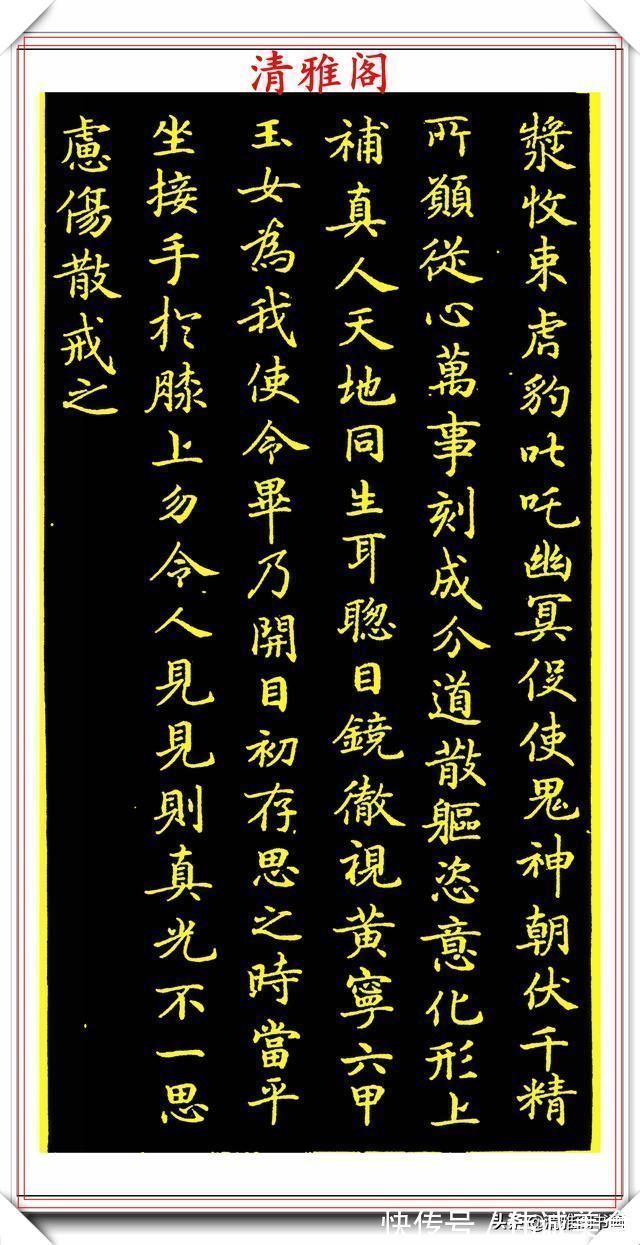 清雅阁
漿收束虎豹叱吒幽冥促使鬼神朝伏千精
所願從心萬事刻成分道散軀恣意化形上
補真人天地同生耳聰目鏡徹視黃寧六甲
玉女為我使令畢乃開目初存思之時當平
坐接手於膝上勿令人見見則真光不一思
慮傷散戒之
快传号